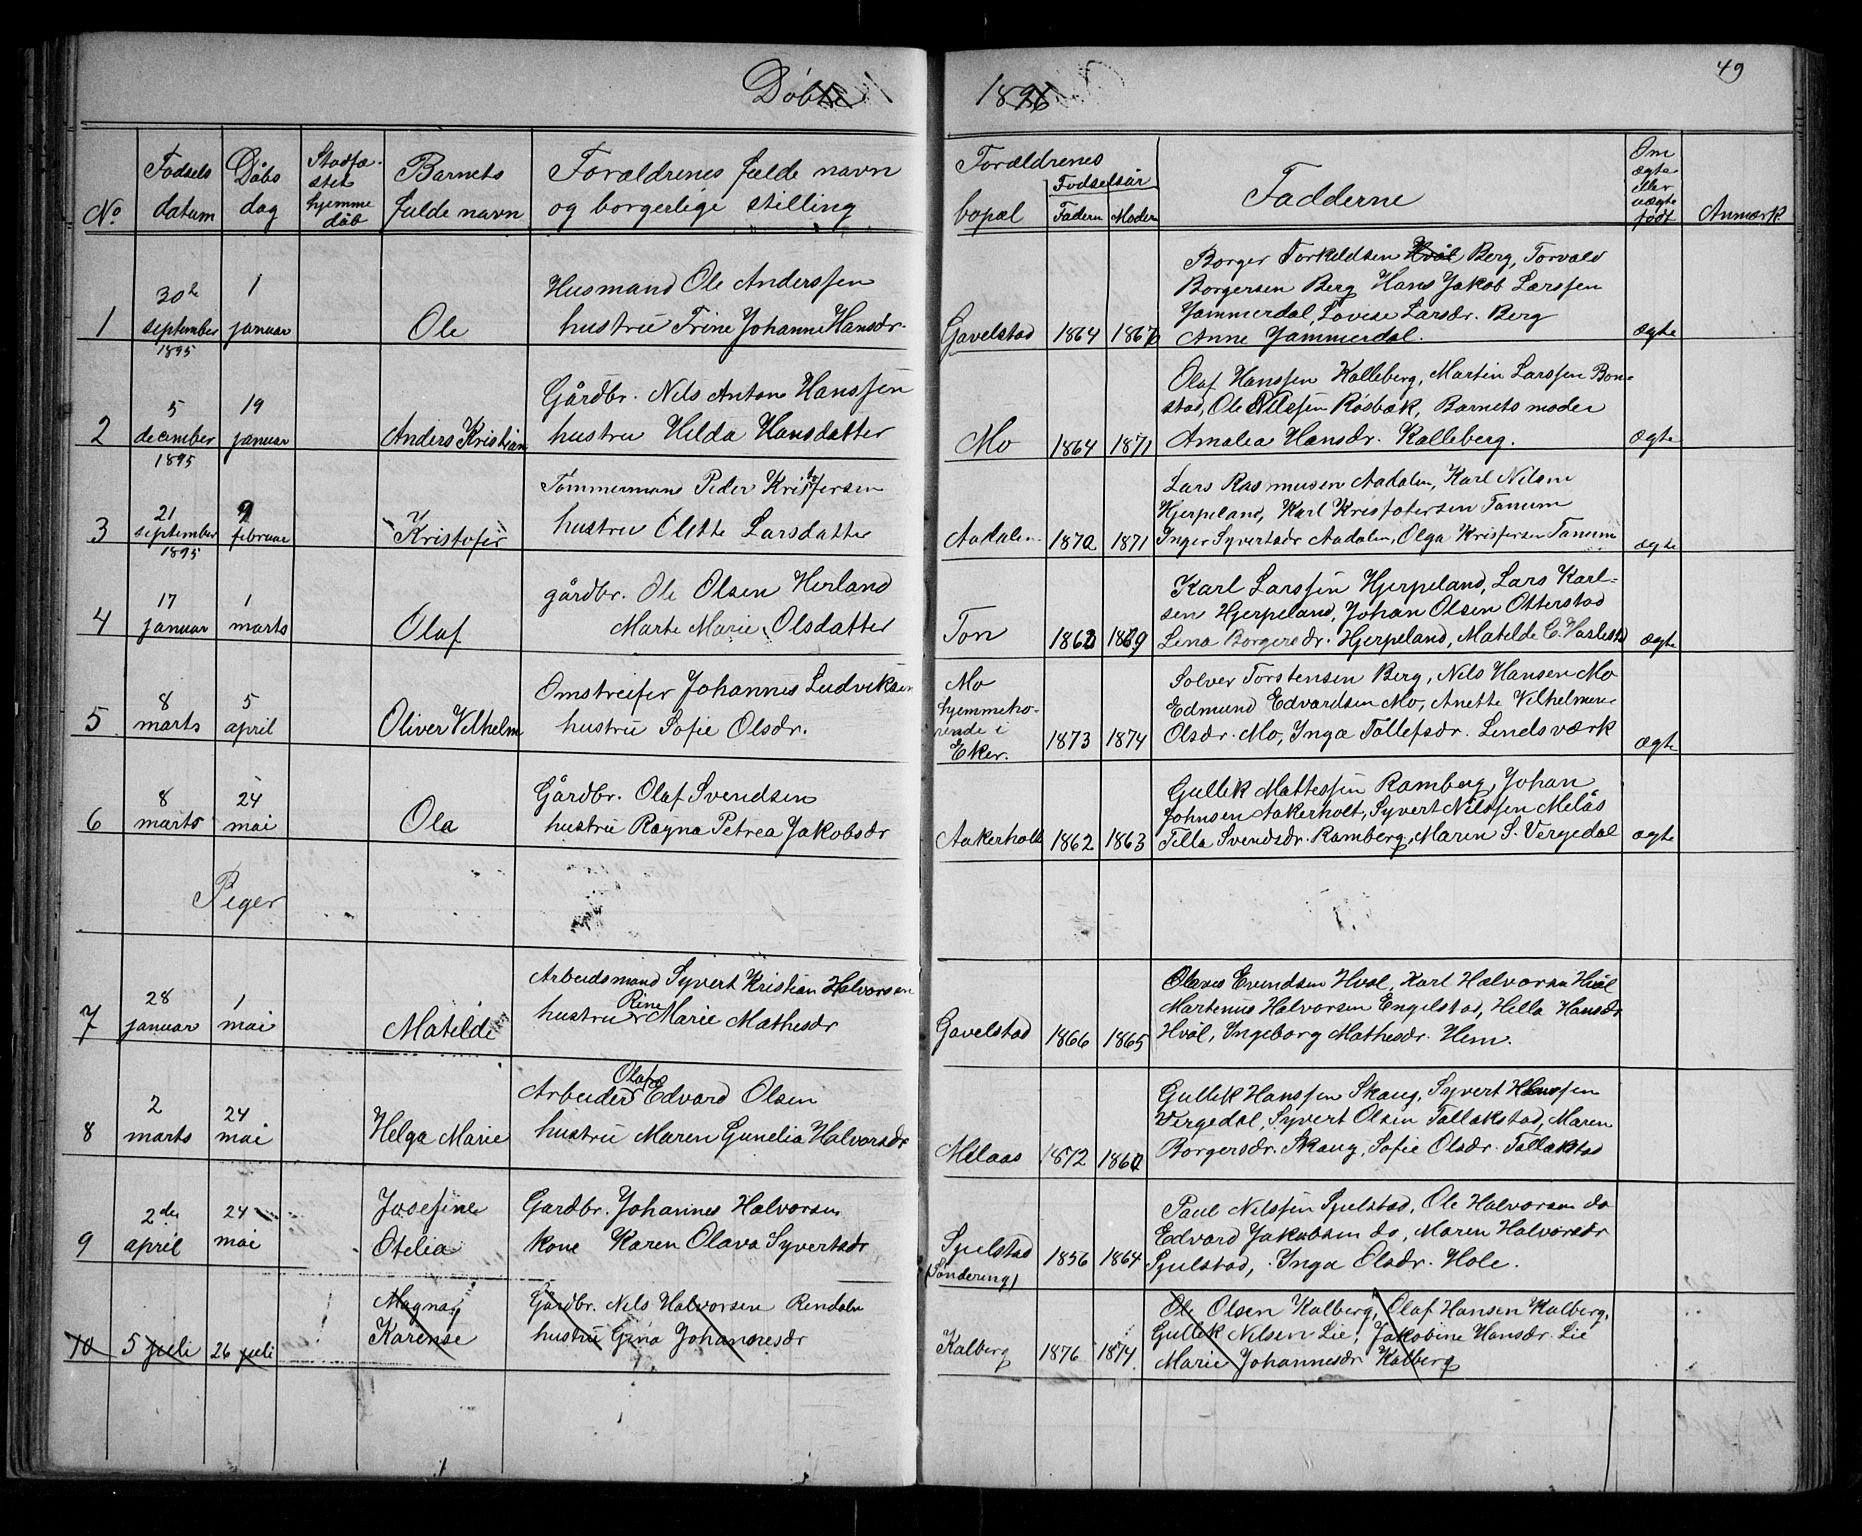 49
Døbte 1896
No
Fødsels datum
Dåbs dag
Stadfæ-
stet
hjemme
dåb
Barnets
fulde navn
Forældrenes fulde navn
og borgerlige stilling
Forældrenes
bopæl
Fødselsår
Fadern Modern
Fadderne
Om
ægte
eller
uægte
født
Anmærk.
1
30te
september
1895
1
januar
Ole
Husmand Ole Anderssen
hustru Trine Johanne Hansdr.
Gavelstad
1864
1867
Borger Torkildsen Hvål Berg, Torvald
Borgersen Berg Hans Jakob Larssen
Jammerdal, Lovise Larsdr. Berg
Anne Jammerdal.
ægte
2
5
december
1895
19
januar
Anders Kristian
Gårdbr. Nils Anton Hanssen
hustru Hilda Hansdatter
Mo
1864
1871
Olaf Hanssen Kalleberg, Martin Larssen Bon-
stad, Ole Nilssen Røsbæk, Barnets moder
Amalia Hansdr. Kalleberg.
ægte
3
21
september
1895
9
februar
Kristofer
Tømmermand Peder Kristofersen
hustru Olette Larsdatter
Aadalen
1870
1871
Lars Rasmussen Aadalen, Karl Nilsen
Hjerpeland, Karl Kristofersen Tanum
Inger Syvertsdr Aadalen, Olga Kristfersen Tanum
ægte
4
17
januar
1
marts
Olaf
gårdbr. Ole Olsen Herland
Marte Marie Olsdatter
Ton
1862
1869
Karl Larssen Hjerpeland, Lars Karl-
sen Hjerpeland, Johan Olsen Otterstad
Lena Borgersdr. Hjerpeland, Matilde C. Haslestad
ægte
5
8
marts
5
april
Oliver Vilhelm
Omstreifer Johannes Ludviksen
hustru Sofie Olsdr.
Mo
hjemmehø-
rende i
Eker.
1873
1874
Solver Torstensen Berg, Nils Hansen Mo
Edmund Edvardsen Mo, Anette Vilhelmine
Olsdr. Mo, Inga Tollefsdr. Lindsværk
ægte
6
8
marts
24
mai
Ola
Gårdbr. Olaf Svendsen
hustru Ragna Petrea Jakobsdr
Aakerholt
1862
1863
Gullik Mattessen Ramberg, Johan
Johnsen Aakerholt, Syvert Nilssen Melås
Tilla Svendsdr. Ramberg, Maren S. Vergedal
ægte
Piger
7
28
januar
1
mai
Matilde
Arbeidsmand Syvert Kristian Halvorsen
hustru Rine Marie Mathesdr
Gavelstad
1866
1865
Olaves Evensen Hvål, Karl Halvorsen Hvål
Martenius Halvorsen Engelstad, Hella Hansdr
Hvål, Ingeborg Mathesdr. Hem.
8
2
marts
24
mai
Helga Marie
Arbeider Olaf Edvard Olsen
hustru Maren Gunelia Halvorsdr
Melaas
1872
1860
Gullik Hanssen Skaug, Syvert Hanssen
Vergedal, Syvert Olsen Tallakstad, Maren
Borgersdr. Skaug, Sofie Olsdr. Tallakstad
9
2den
april
24
mai
Josefine
Otelia
Gardbr. Johannes Halvorsen
kone Karen Olava Syvertsdr
Sjulstad
(Søndering)
1856
1864
Paul Nilssen Sjulstad, Ole Halvorsen do
Edvard Jakobsen do, Maren Halvorsdr
Sjulstad, Inga Olsdr. Hole.
10
5 juli
26 juli
Magna
Karense
Gårdbr. Nils Halvorsen Rendalen
hustru Gina Johannesdr
Kalberg
1876
1874
Ole Olsen Kalberg, Olaf Hansen Kalberg,
Gullik Nilsen Lie, Jakobine Hansdr. Lie
Marie Johannesdr Kalberg